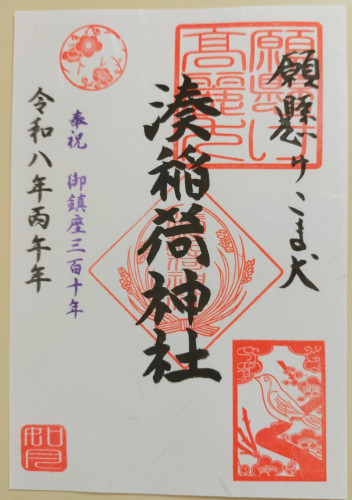 願懸けこま犬
願懸け高麗犬
湊稲荷神社
奉祝 御鎮座三百十年
令和八年丙午年
如月